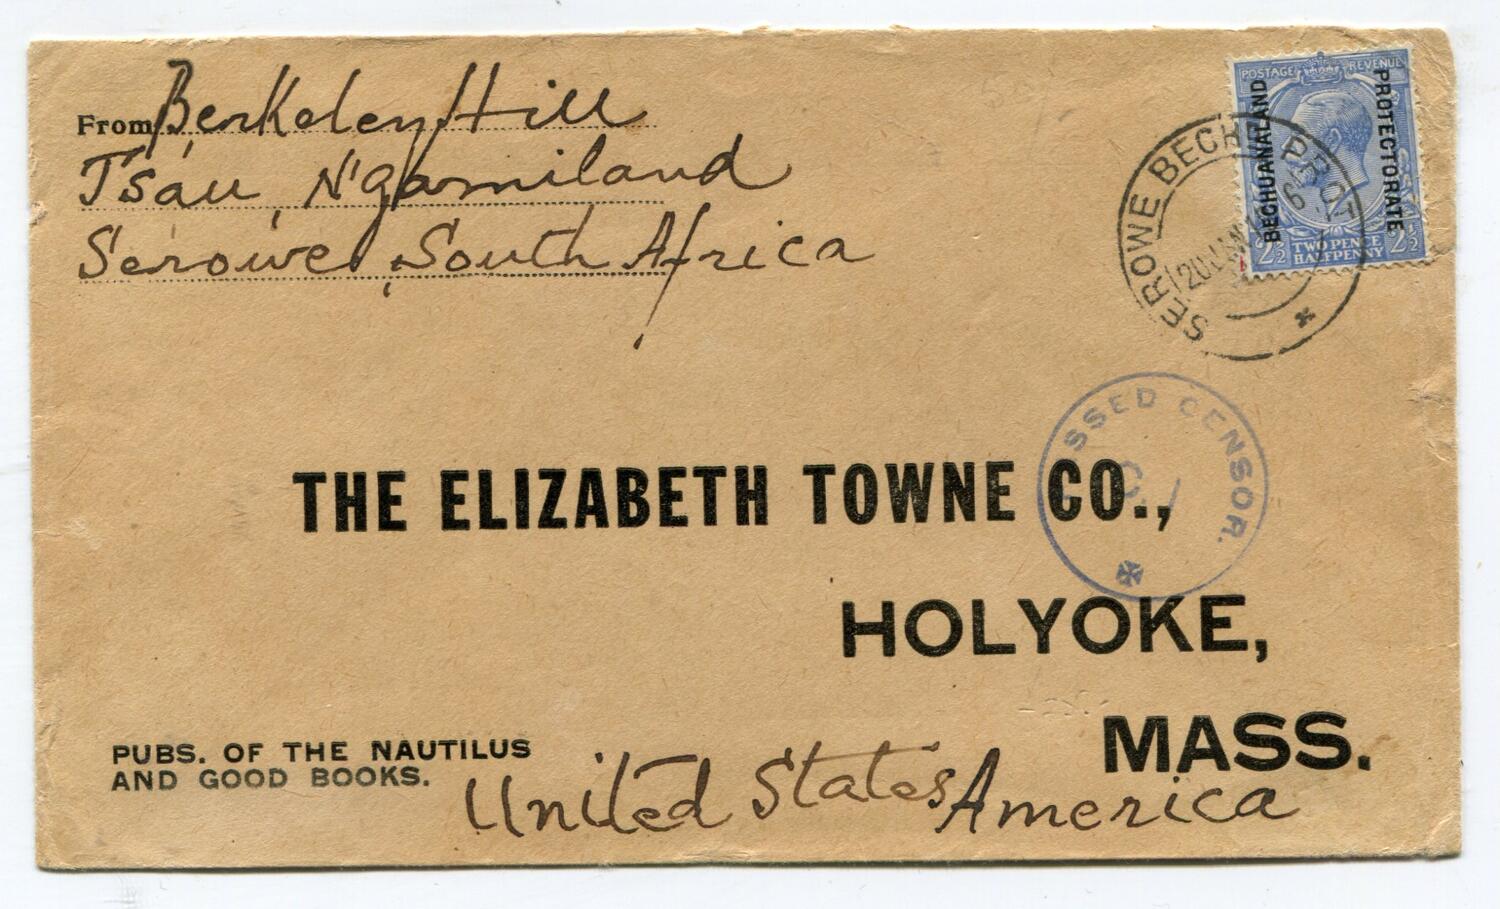 From Berkeley Hill
Tsau, N'gamiland
Serowe, South Africa
POSTAGE REVENUE
BECHUANALAND
PROTECTORATE
2½ TWO PENCE HALFPENNY 2½
SEROWE BECH. PROT
20 JAN
PASSED CENSOR.
THE ELIZABETH TOWNE CO.,
HOLYOKE,
MASS.
PUBS. OF THE NAUTILUS
AND GOOD BOOKS.
United States America